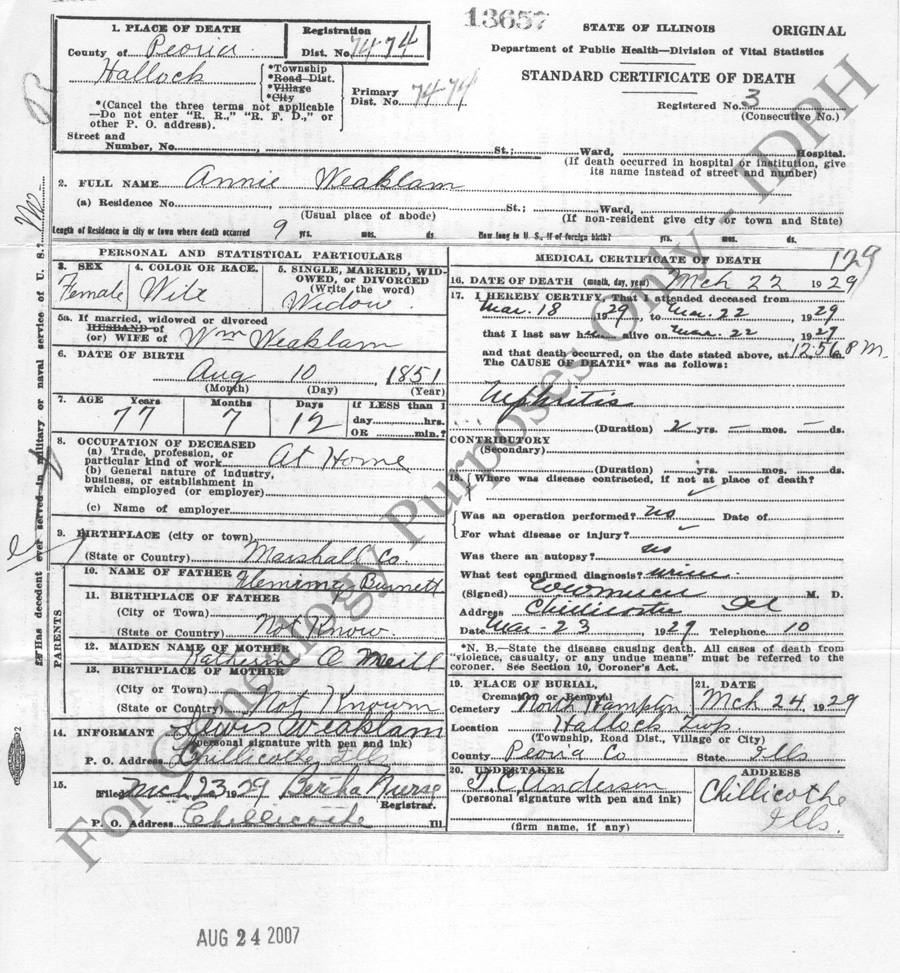 13657
1. PLACE OF DEATH
County of Peoria
Hallock
*Township
*Road Dist.
*Village
*City
*(Cancel the three terms not applicable
—Do not enter "R. R.," "R. F. D.," or
other P. O. address).
Street and
Number, No. St.; Ward, Hospital.
(If death occurred in hospital or institution, give
its name instead of street and number)
Registration
Dist. No. 7474
Primary
Dist. No. 7474
STATE OF ILLINOIS ORIGINAL
Department of Public Health—Division of Vital Statistics
STANDARD CERTIFICATE OF DEATH
Registered No. 3
(Consecutive No.)
2. FULL NAME Annie Weaklam
(a) Residence No. St.; Ward,
(Usual place of abode) (If non-resident give city or town and State)
Length of Residence in city or town where death occurred 9 yrs. mos. ds. How long in U. S., if of foreign birth? yrs. mos. ds.
PERSONAL AND STATISTICAL PARTICULARS
3. SEX
Female
4. COLOR OR RACE.
Wite
5. SINGLE, MARRIED, WID-
OWED, or DIVORCED
(Write the word)
Widow
5a. If married, widowed or divorced
HUSBAND of
(or) WIFE of Wm Weaklam
6. DATE OF BIRTH
Aug 10, 1851
(Month) (Day) (Year)
7. AGE Years Months Days If LESS than 1
77 7 12 day hrs.
OR min.?
8. OCCUPATION OF DECEASED
(a) Trade, profession, or
particular kind of work At Home
(b) General nature of industry,
business, or establishment in
which employed (or employer)
(c) Name of employer
9. BIRTHPLACE (city or town)
(State or Country) Marshall Co
PARENTS
10. NAME OF FATHER Fleming Burnett
11. BIRTHPLACE OF FATHER
(City or Town)
(State or Country) Not Know.
12. MAIDEN NAME OF MOTHER
O Neill
13. BIRTHPLACE OF MOTHER
(City or Town)
(State or Country) Not Known
14. INFORMANT Lewis Weaklam
(personal signature with pen and ink)
P. O. Address Chillicothe Ills
15.
Filed Mch 23, 1929 Bertha Nurse
Registrar.
P. O. Address Chillicothe Ill.
MEDICAL CERTIFICATE OF DEATH 129
16. DATE OF DEATH (month, day, year) Mch 22 1929
17. I HEREBY CERTIFY, That I attended deceased from
Mar. 18 1929, to Mar. 22, 1929
that I last saw h alive on Mar. 22, 1929
and that death occurred, on the date stated above, at 12:5 P M.
The CAUSE OF DEATH* was as follows:
Nephritis
(Duration) 2 yrs. — mos. — ds.
CONTRIBUTORY
(Secondary)
(Duration) yrs. mos. ds.
18. Where was disease contracted, if not at place of death?
Was an operation performed? no Date of
For what disease or injury?
Was there an autopsy? no
What test confirmed diagnosis? urine
(Signed) M. D.
Address Chillicothe Ill
Date Mar - 23, 1929 Telephone 10
*N. B.—State the disease causing death. All cases of death from
"violence, casualty, or any undue means" must be referred to the
coroner. See Section 10, Coroner's Act.
19. PLACE OF BURIAL,
Cremation or Removal
Cemetery North Hampton
21. DATE
Mch 24, 1929
Location Hallock Twp
(Township, Road Dist., Village or City)
County Peoria Co State Ills
20. UNDERTAKER
Anderson
(personal signature with pen and ink)
(firm name, if any)
ADDRESS
Chillicothe
Ills.
Has decedent ever served in military or naval service of U. S.? No
For Genealogy Purposes Only - IDPH
AUG 24 2007